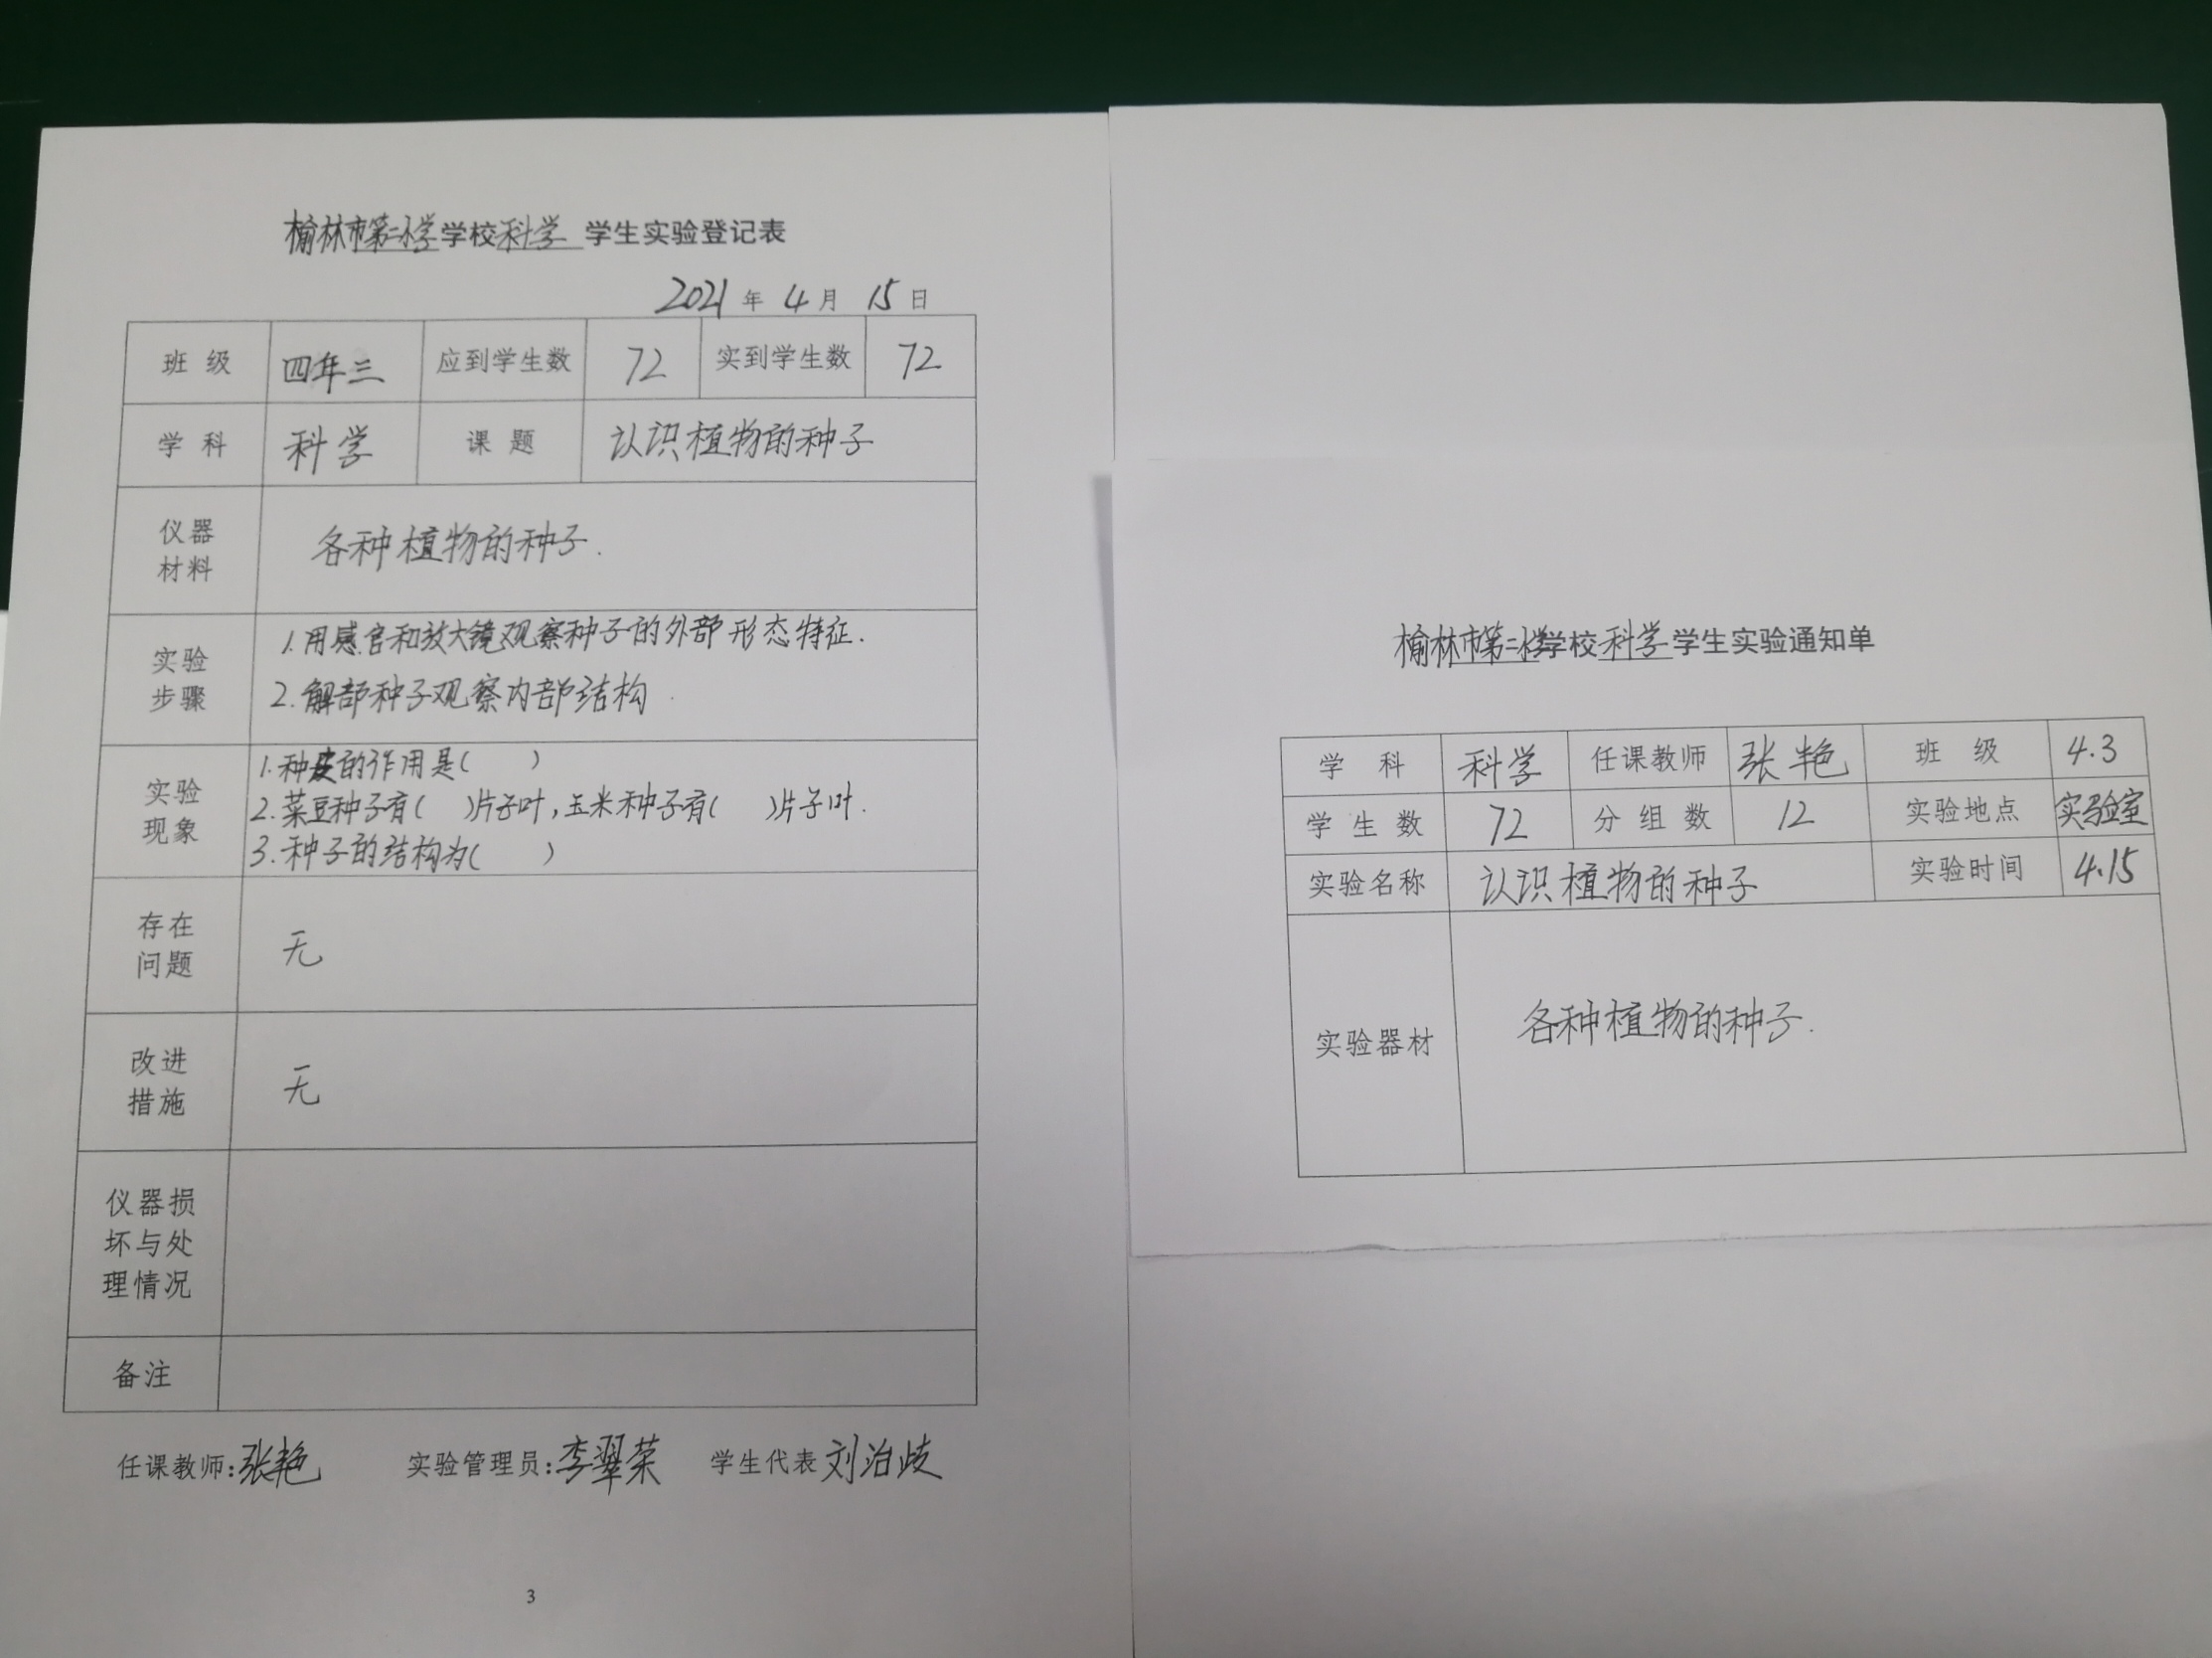 榆林市第二小学学校科学 学生实验登记表
2021年4月15日
班级 四年三 应到学生数 72 实到学生数 72
学科 科学 课题 认识植物的种子
仪器材料 各种植物的种子.
实验步骤 1.用感官和放大镜观察种子的外部形态特征.
2.解部种子观察内部结构.
实验现象 1.种皮的作用是( )
2.菜豆种子有( )片子叶,玉米种子有( )片子叶.
3.种子的结构为( )
存在问题 无
改进措施 无
仪器损坏与处理情况
备注
任课教师:张艳 实验管理员:李翠荣 学生代表 刘治歧
3
榆林市第二小学学校科学学生实验通知单
学科 科学 任课教师 张艳 班级 4.3
学生数 72 分组数 12 实验地点 实验室
实验名称 认识植物的种子 实验时间 4.15
实验器材 各种植物的种子.